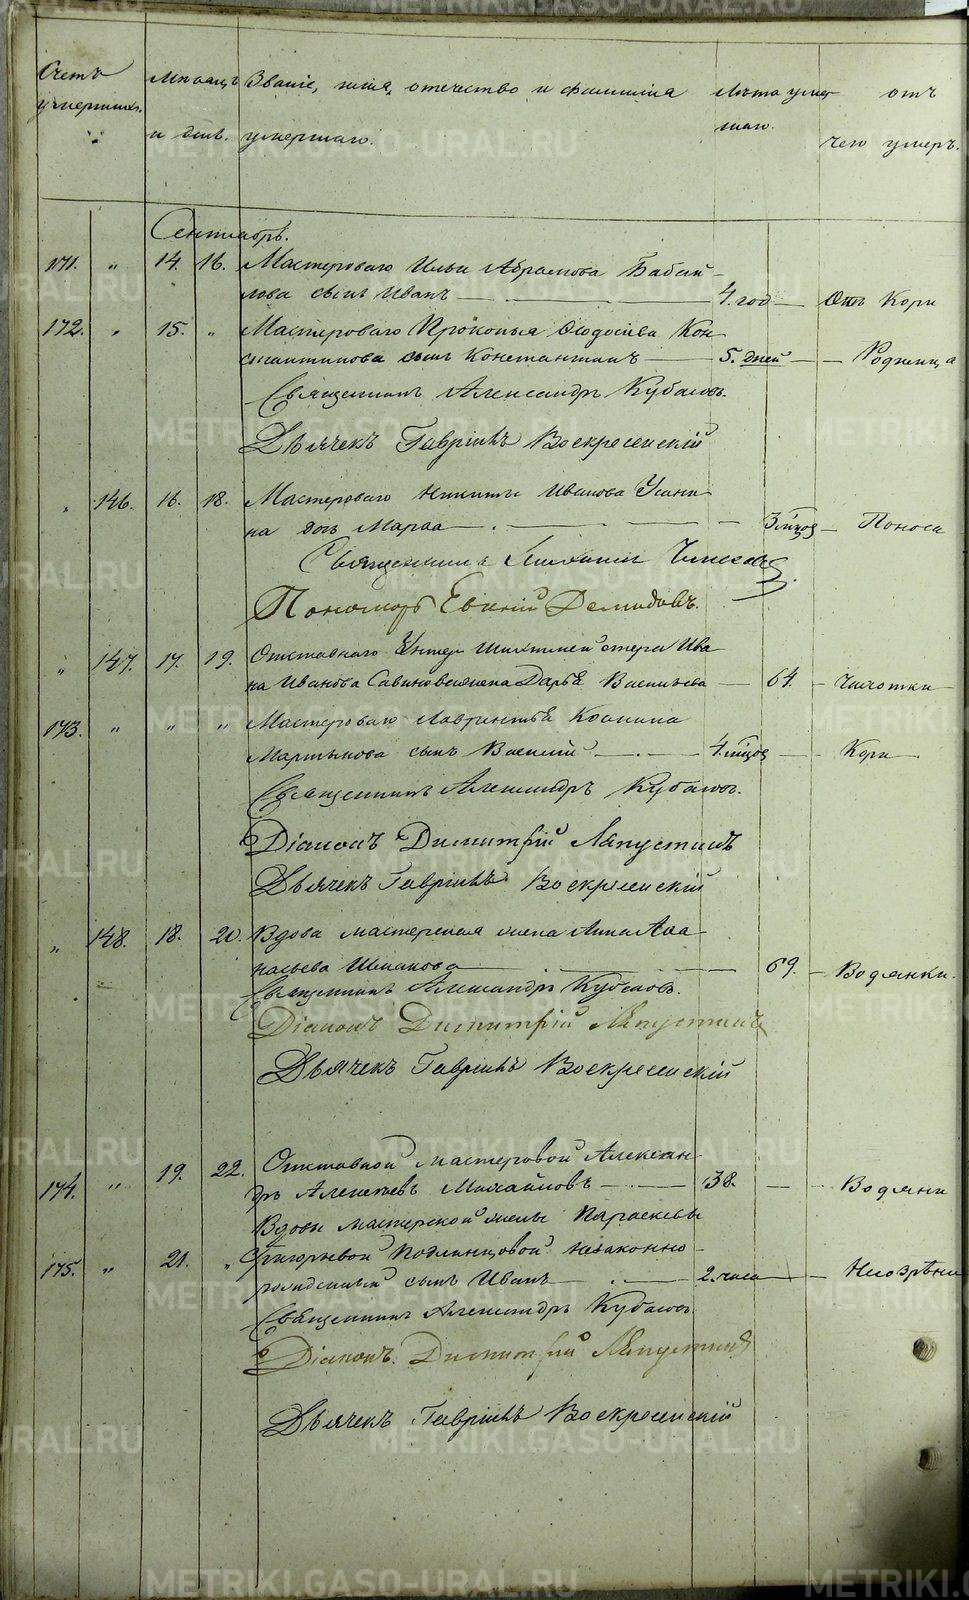 Счетъ умершихъ.
Мѣсяцъ и день.
Званіе, имя, отечество и фамилія умершаго.
Лѣта умершаго.
отъ чего умеръ.
Сентябрь.
171. " 14. 16. Мастероваго Ильи Абрамова Бабай-
лова сынъ Иванъ — 4. год — Отъ Кори
172. " 15. " Мастероваго Прокопья Ѳедосѣева Кон-
стантинова сынъ Константинъ — 5. дней — Родимца
Священникъ Александръ Кубасовъ.
Дьячекъ Гавріилъ Воскресенскій
" 146. 16. 18. Мастероваго Никиты Иванова Усани-
на дочь Марѳа — 3 мѣцов — Поноса
Священникъ
Пономарь Евѳимій Демидовъ.
" 147. 17. 19. Отставнаго Унтер Шихтмейстера Ива-
на Иванова жена Дарья Васильева — 61. — Чахотки
173. " " " Мастероваго Лаврентья
Мартынова сынъ Василій — 4. мѣцов — Кори
Священникъ Александръ Кубасовъ.
Діаконъ Димитрій Ляпустинъ
Дьячекъ Гавріилъ Воскресенскій
" 148. 18. 20. Вдова мастерская жена Анна Аѳа-
насьева — 69. — Водянки.
Священникъ Александръ Кубасовъ.
Діаконъ Димитрій Ляпустинъ
Дьячекъ Гавріилъ Воскресенскій
174. " 19. 22. Отставной мастеровой Алексан-
дръ Алексѣевъ Михайловъ — 38. — Водянки
Вдовы мастерской жены Параскевы
175. " 21. " Григорьевой Подлинцовой незаконно-
рожденный сынъ Иванъ — 2. часа —
Священникъ Александръ Кубасовъ.
Діаконъ Димитрій Ляпустинъ
Дьячекъ Гавріилъ Воскресенскій
METRIKI.GASO-URAL.RU